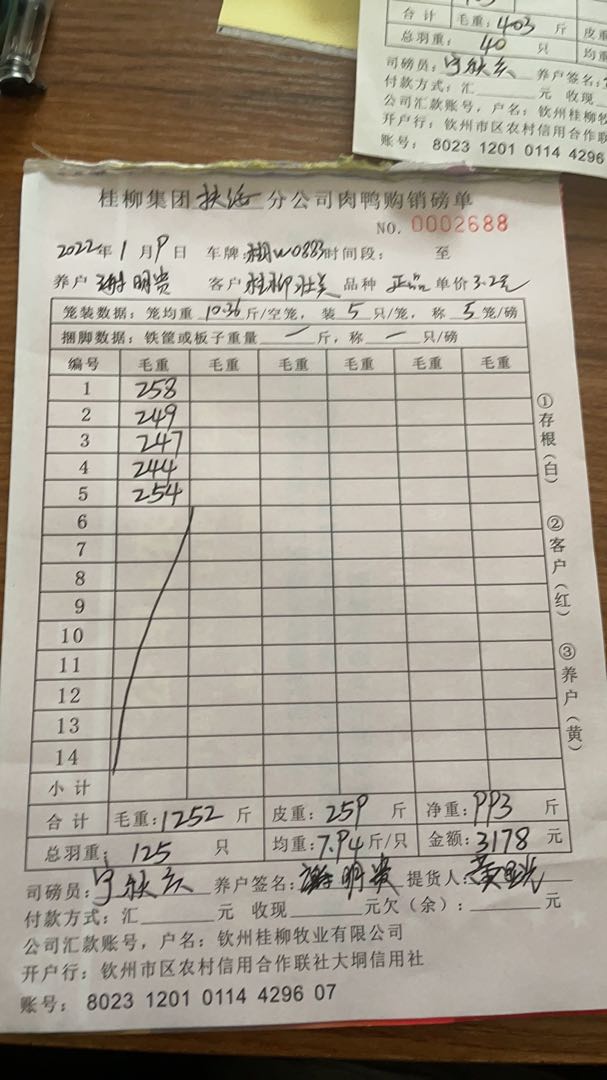 合计 毛重:403 斤 皮重
总羽重: 40 只 均重
司磅员: 养户签名:
付款方式:汇 元 收现
公司汇款账号,户名:钦州桂柳牧
开户行:钦州市区农村信用合作联
账号: 8023 1201 0114 4296
桂柳集团 分公司肉鸭购销磅单
NO. 0002688
2022年1月9日 车牌: W0883 时间段: 至
养户 谢明贵 客户 桂柳 品种 正品 单价 3.2元
笼装数据:笼均重 10.36 斤/空笼,装 5 只/笼,称 5 笼/磅
捆脚数据:铁筐或板子重量 — 斤,称 — 只/磅
编号 毛重 毛重 毛重 毛重 毛重 毛重
1 258
2 249
3 247
4 244
5 254
6
7
8
9
10
11
12
13
14
小计
合计 毛重:1252 斤 皮重:259 斤 净重:993 斤
总羽重: 125 只 均重:7.94斤/只 金额:3178 元
司磅员: 养户签名:谢明贵 提货人:
付款方式:汇 元 收现 元欠(余): 元
公司汇款账号,户名:钦州桂柳牧业有限公司
开户行:钦州市区农村信用合作联社大垌信用社
账号: 8023 1201 0114 4296 07
①存根(白)
②客户(红)
③养户(黄)